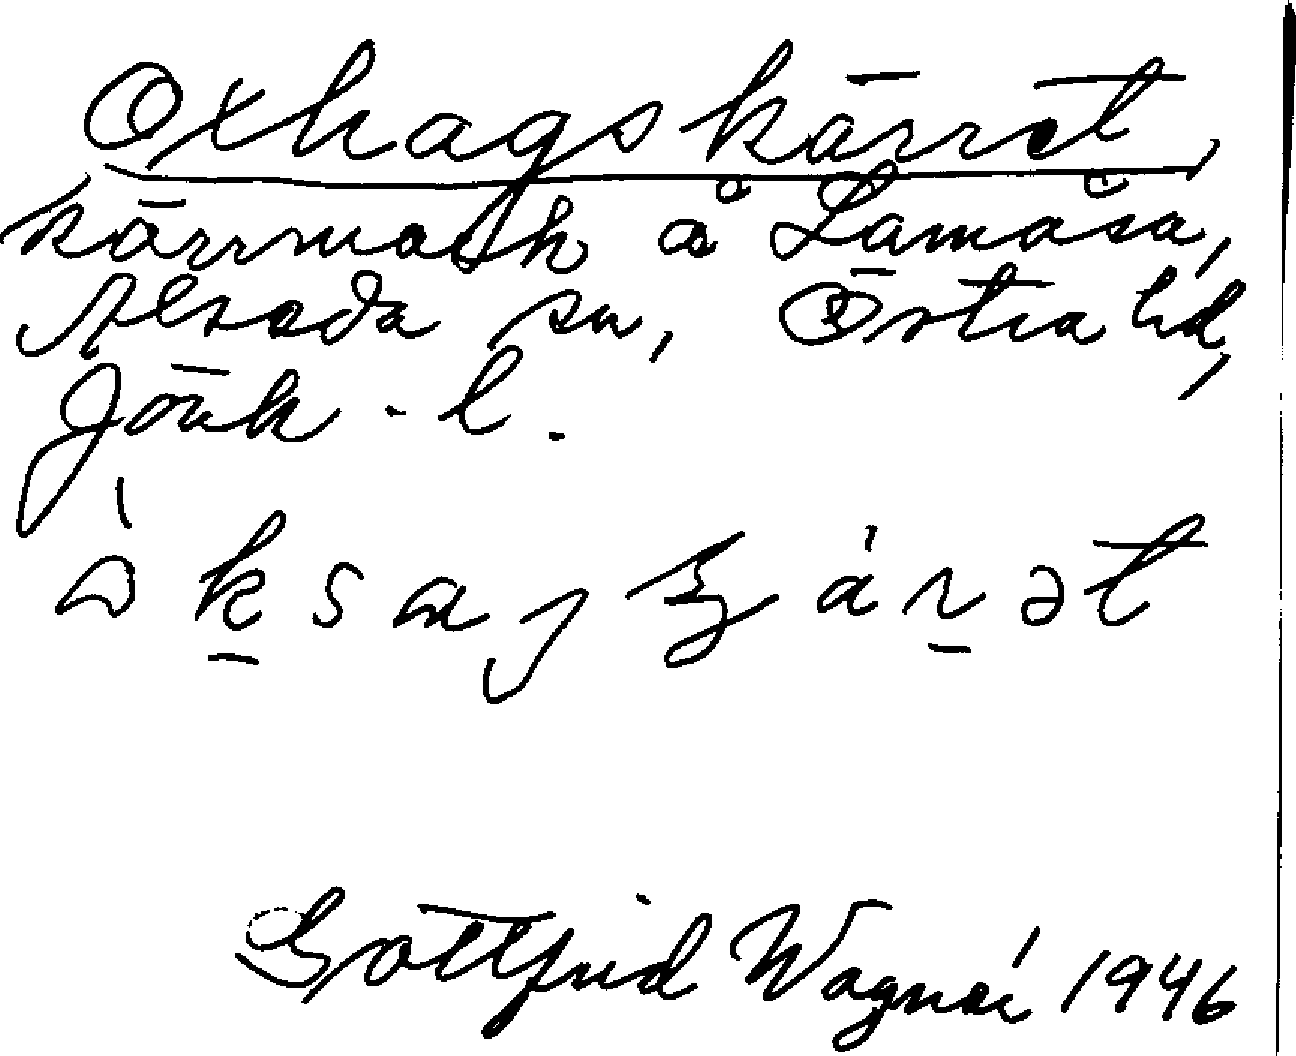 Oxhagskärret,
kärrmark å Lamåsa,
Alseda sn, Östra hd,
Jönk. l.
Gottfrid Wagnér 1946